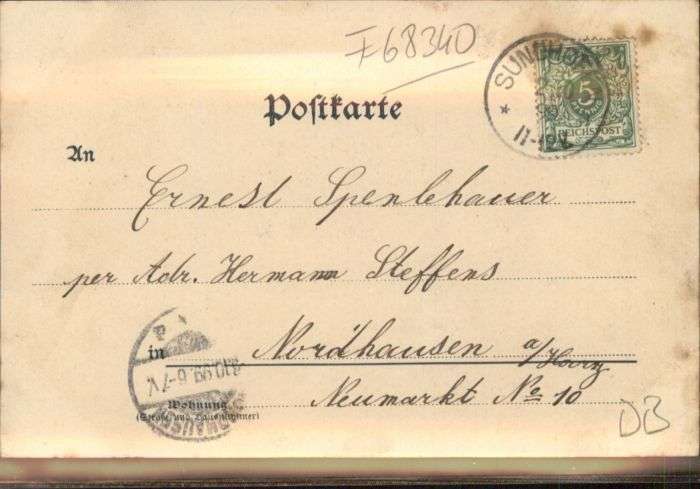 F68340
SUNDHOF
5
REICHSPOST
11-12V.
Postkarte
An
Ernest Spenlehauer
per Adr. Hermann Steffens
in Nordhausen a/Harz
Neumarkt No 10
Wohnung
(Straße und Hausnummer)
8.10.99.6-7V.
NORDHAUSEN
DB